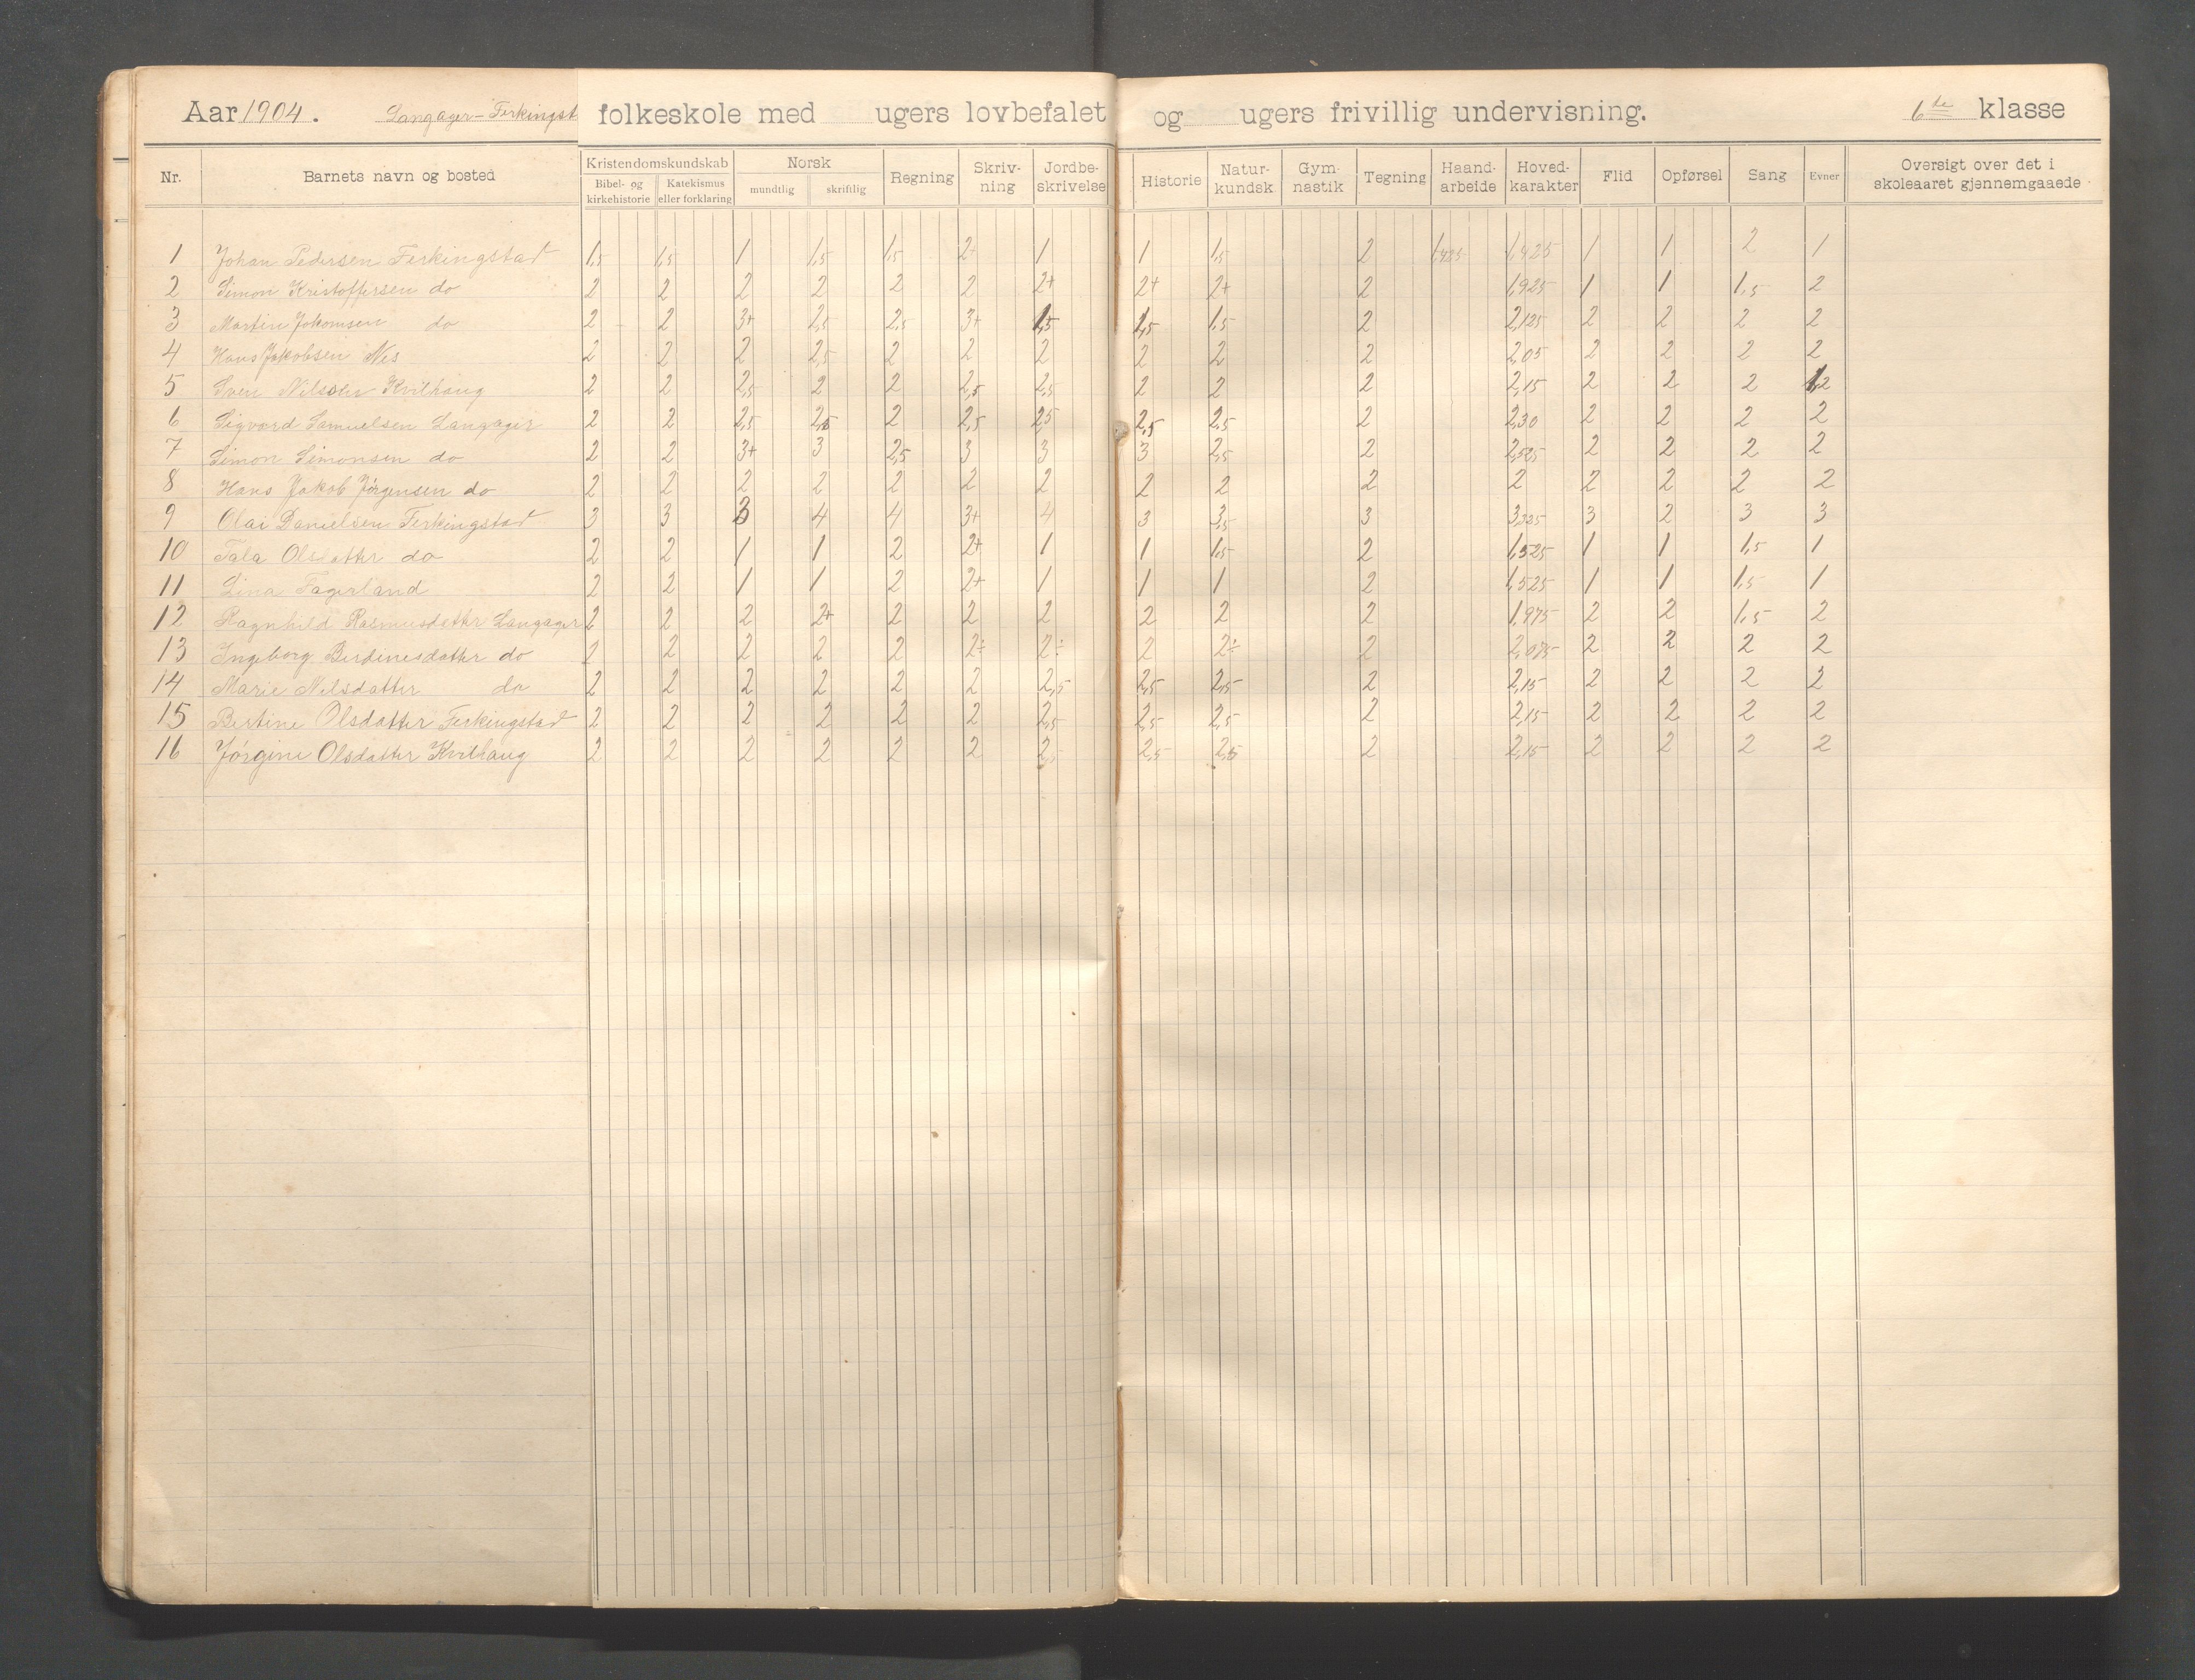 Aar 1904. Langager-Ferkingst folkeskole med ugers lovbefalet og ugers frivillig undervisning. 6te klasse
Nr. Barnets navn og bosted Kristendomskundskab Bibel- og kirkehistorie Katekismus eller forklaring Norsk mundtlig skriftlig Regning Skriv-ning Jordbe-skrivelse Historie Natur-kundsk. Gym-nastik Tegning Haand-arbeide Hoved-karakter Flid Opførsel Sang Evner Oversigt over det i skoleaaret gjennemgaaede
1 Johan Pedersen Ferkingstad 1,5 1,5 1 1,5 1,5 2+ 1 1 1,5 2 1,425 1,425 1 1 2 1
2 Simon Kristoffersen do 2 2 2 2 2 2 2+ 2+ 2+ 2 1,925 1 1 1,5 2
3 Martin Johannsen do 2 2 3+ 2,5 2,5 3+ 1,5 1,5 1,5 2 2,125 2 2 2 2
4 Hans Jakobsen Nes 2 2 2 2,5 2 2 2 2 2 2 2,05 2 2 2 2
5 Sven Nilssen Kvilhaug 2 2 2,5 2 2 2,5 2,5 2 2 2 2,15 2 2 2 2
6 Sigvard Samuelsen Langager 2 2 2,5 2,5 2 2,5 2,5 2,5 2,5 2 2,30 2 2 2 2
7 Simon Simonsen do 2 2 3+ 3 2,5 3 3 3 2,5 2 2,525 2 2 2 2
8 Hans Jakob Jørgensen do 2 2 2 2 2 2 2 2 2 2 2 2 2 2 2
9 Olai Danielsen Ferkingstad 3 3 3 4 4 3+ 4 3 3,5 3 3,325 3 2 3 3
10 Tala Olsdatter do 2 2 1 1 2 2+ 1 1 1,5 2 1,525 1 1 1,5 1
11 Lina Fagerland 2 2 1 1 2 2+ 1 1 1 2 1,525 1 1 1,5 1
12 Ragnhild Rasmusdatter Langager 2 2 2 2+ 2 2 2 2 2 2 1,975 2 2 1,5 2
13 Ingeborg Berdinesdatter do 2 2 2 2 2 2÷ 2÷ 2 2÷ 2 2,075 2 2 2 2
14 Marie Nilsdatter do 2 2 2 2 2 2 2,5 2,5 2,5 2 2,15 2 2 2 2
15 Bertine Olsdatter Ferkingstad 2 2 2 2 2 2 2,5 2,5 2,5 2 2,15 2 2 2 2
16 Jørgine Olsdatter Kvilhaug 2 2 2 2 2 2 2,5 2,5 2,5 2 2,15 2 2 2 2